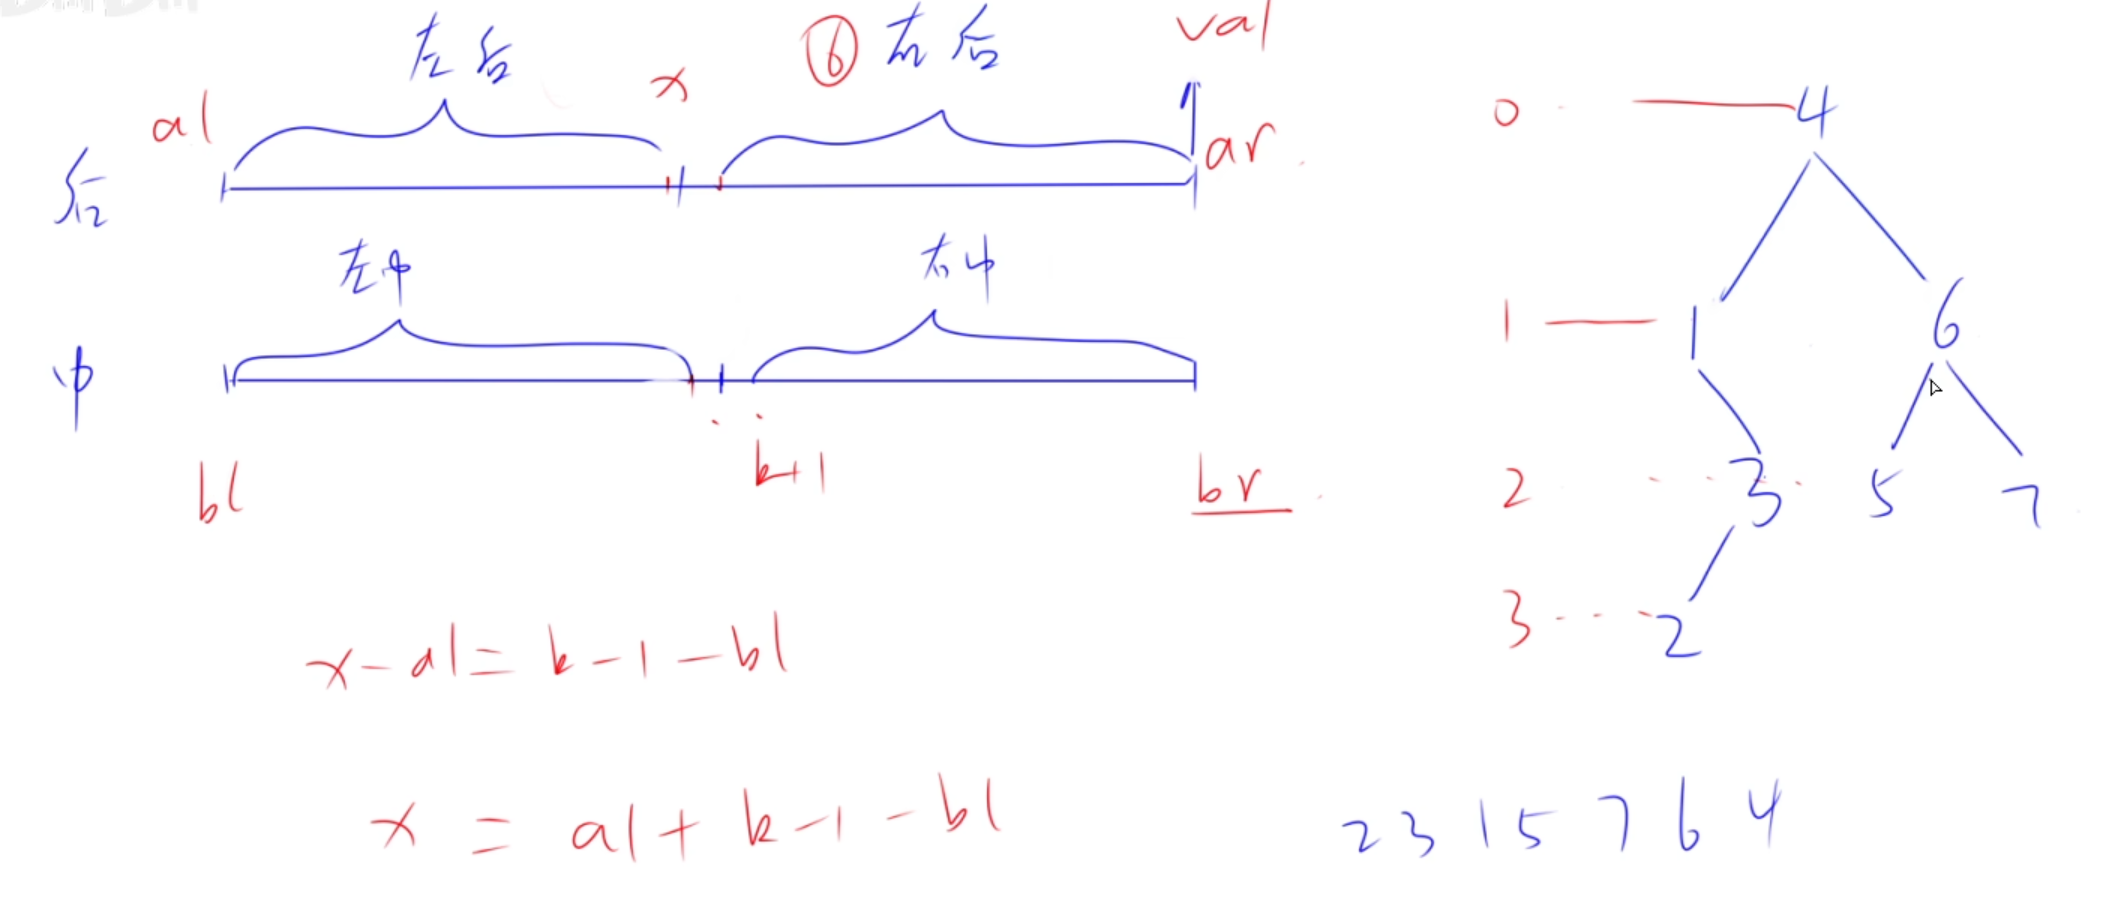 左后 x ⑥ 右后 val
al ar
后
左中 右中
中
bl k+1 br
x-al=k-1-bl
x = al+k-1-bl
0 4
1 1 6
2 3 5 7
3 2
2 3 1 5 7 6 4